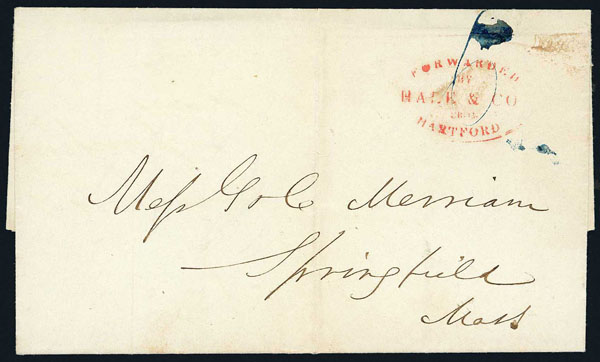 FORWARDED
BY
HALE & CO
FROM
HARTFORD
Mess G & C Merriam
Springfield
Mass